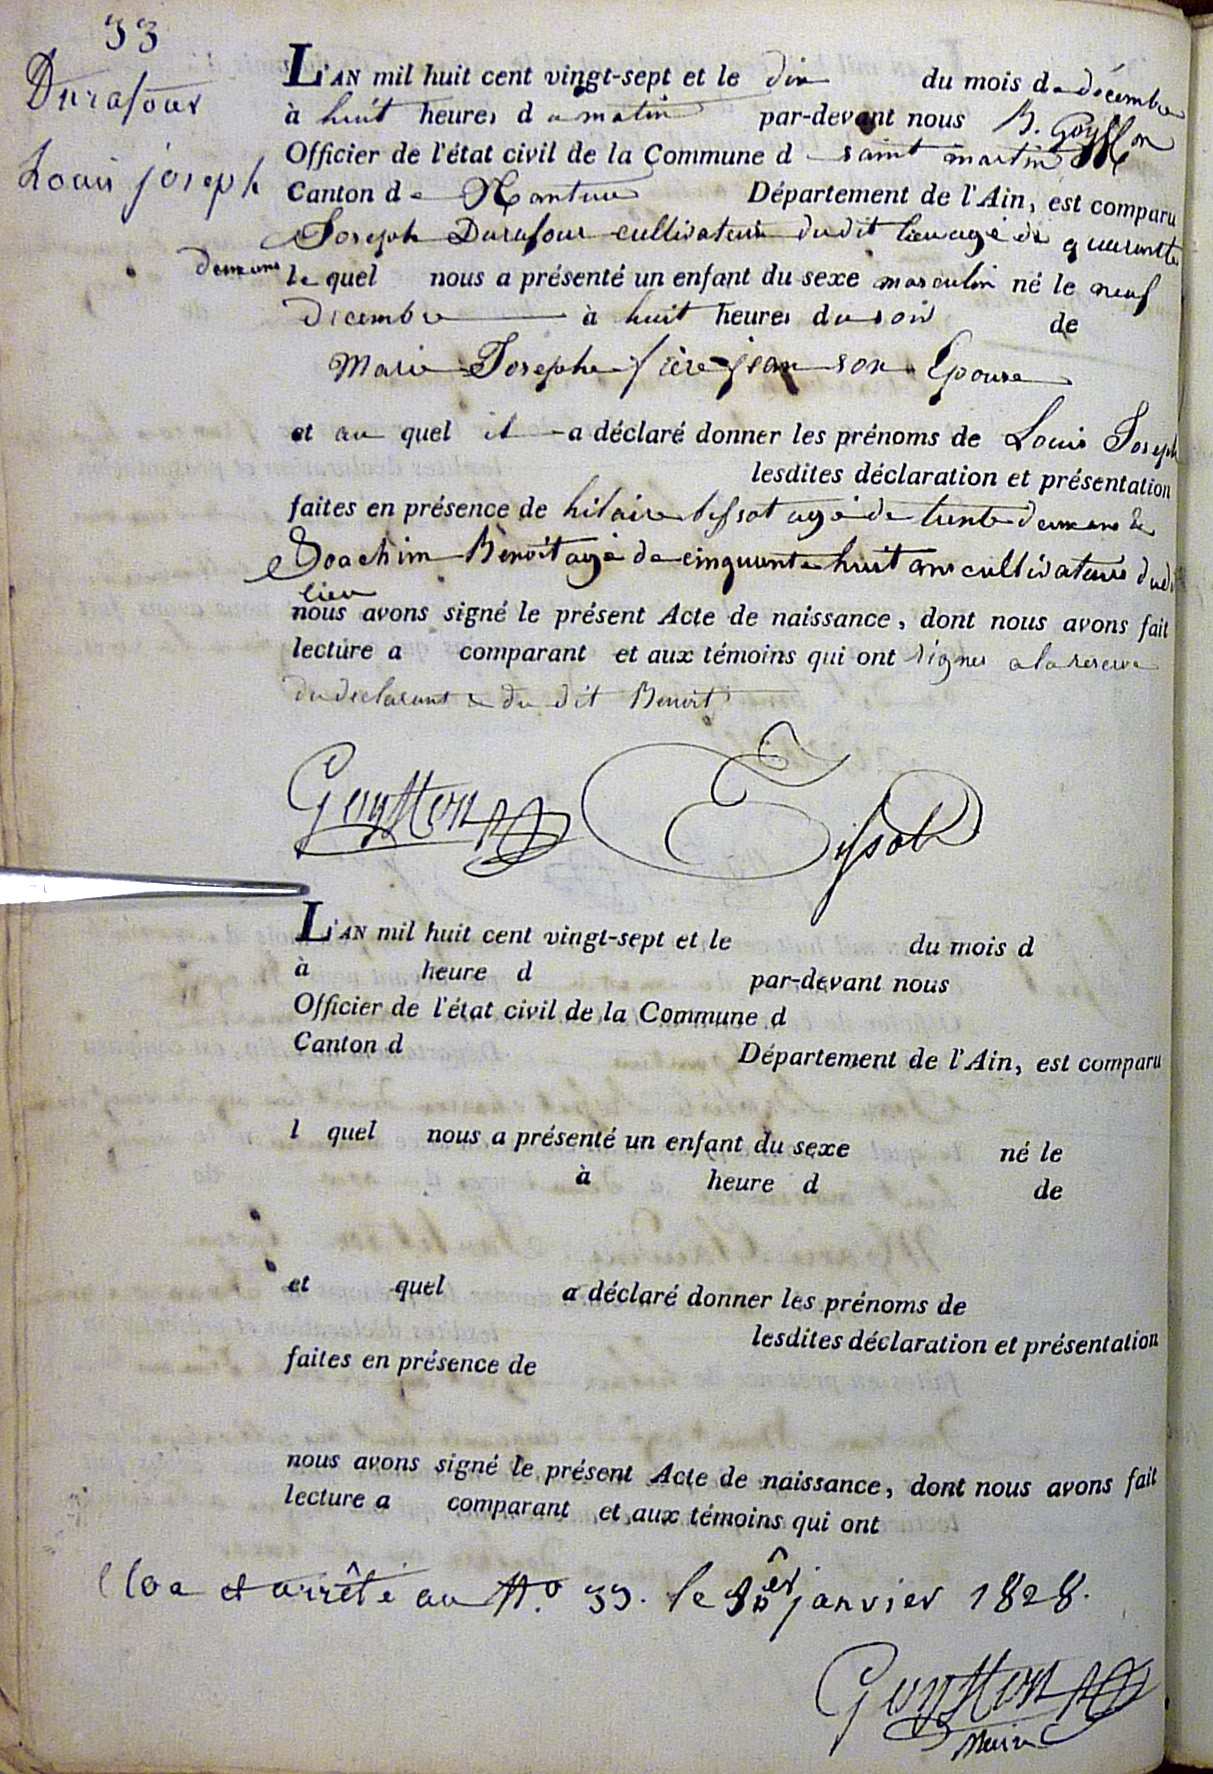 33
Durafour
Louis joseph
L'AN mil huit cent vingt-sept et le dix du mois de décembre
à huit heures du matin par-devant nous B. Goyffon
Officier de l'état civil de la Commune de saint martin
Canton de Nantua Département de l'Ain, est comparu
Joseph Durafour cultivateur dudit lieu agé de quarante
deux ans
le quel nous a présenté un enfant du sexe masculin né le neuf
Decembre à huit heures du soir de
Marie Josephe son Epouse
et au quel il a déclaré donner les prénoms de Louis Joseph
lesdites déclaration et présentation
faites en présence de hilaire tissot agé de trente deux ans &
Joachim Benoit agé de cinquante huit ans cultivateurs dudit
lieu
nous avons signé le présent Acte de naissance, dont nous avons fait
lecture a comparant et aux témoins qui ont signer a la réserve
du declarant & du dit Benoit
Goyffon Tissot
L'AN mil huit cent vingt-sept et le du mois d
à heure d par-devant nous
Officier de l'état civil de la Commune d
Canton d Département de l'Ain, est comparu
l quel nous a présenté un enfant du sexe né le
à heure d de
et quel a déclaré donner les prénoms de
lesdites déclaration et présentation
faites en présence de
nous avons signé le présent Acte de naissance, dont nous avons fait
lecture a comparant et aux témoins qui ont
Clos et arrêté au N.o 33. le 1er janvier 1828.
Goyffon
Maire